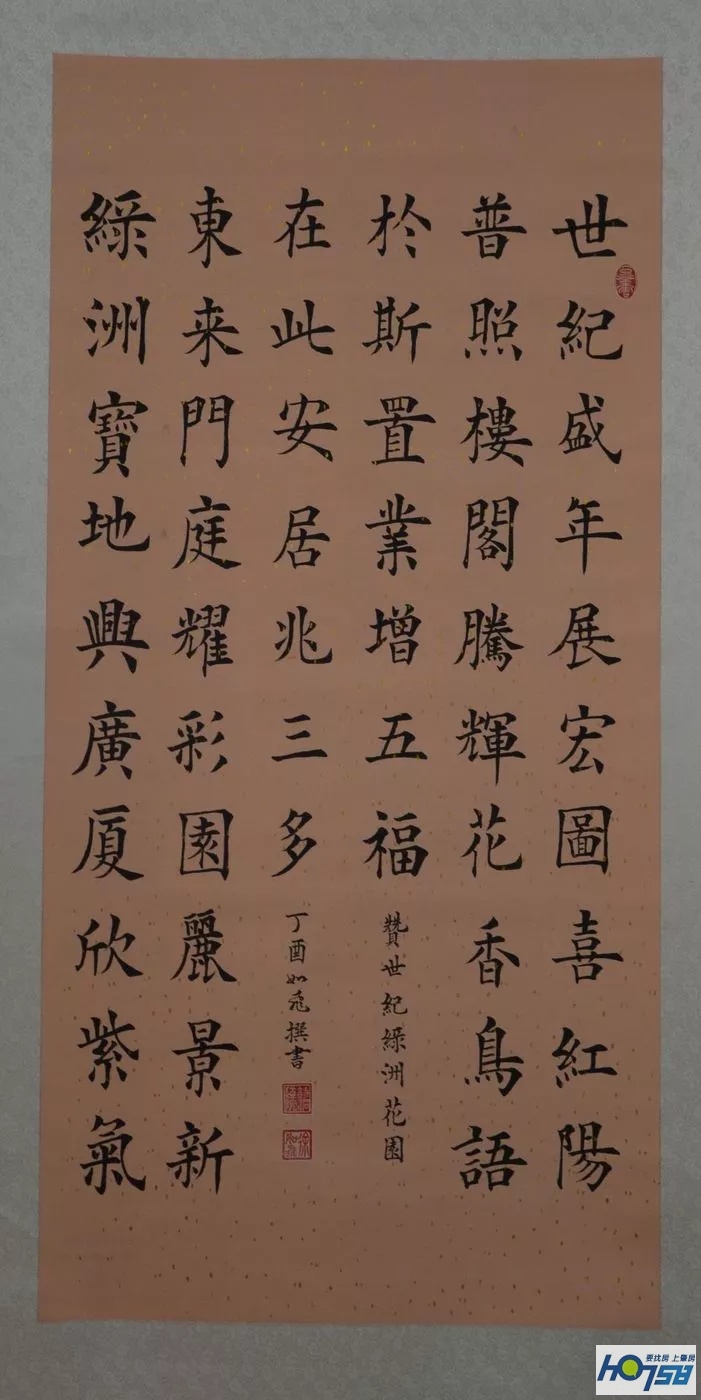 世紀盛年展宏圖喜紅陽
普照樓閣騰輝花香鳥語
於斯置業增五福
贊世紀綠洲花園
綠洲寶地興廣厦欣紫氣
東来門庭耀彩園麗景新
在此安居兆三多
丁酉如飛撰書
要找房 上肇房
HO758